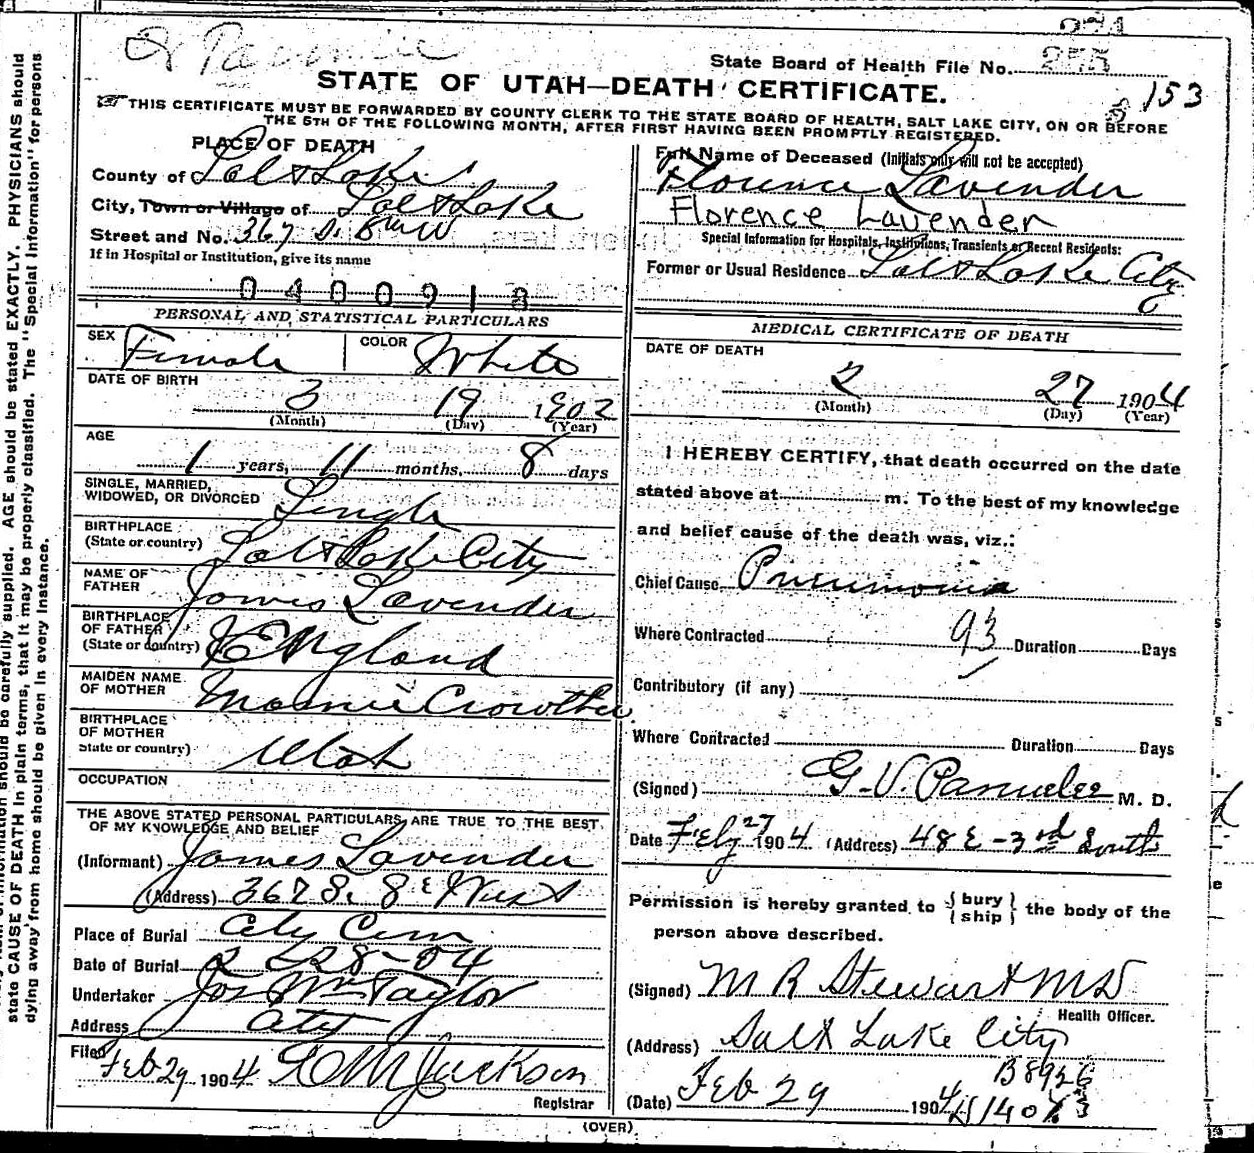 274
State Board of Health File No. 255
STATE OF UTAH—DEATH CERTIFICATE.
153
THIS CERTIFICATE MUST BE FORWARDED BY COUNTY CLERK TO THE STATE BOARD OF HEALTH, SALT LAKE CITY, ON OR BEFORE
THE 5TH OF THE FOLLOWING MONTH, AFTER FIRST HAVING BEEN PROMPTLY REGISTERED.
PLACE OF DEATH
County of Salt Lake
City, Town or Village of Salt Lake
Street and No. 367 S. 8th W
If in Hospital or Institution, give its name
0400918
Full Name of Deceased (Initials only will not be accepted)
Florence Lavender
Florence Lavender
Special Information for Hospitals, Institutions, Transients or Recent Residents:
Former or Usual Residence Salt Lake City
PERSONAL AND STATISTICAL PARTICULARS
SEX Female COLOR White
DATE OF BIRTH
3 19 1902
(Month) (Day) (Year)
AGE
1 years, 11 months, 8 days
SINGLE, MARRIED,
WIDOWED, OR DIVORCED Single
BIRTHPLACE
(State or country) Salt Lake City
NAME OF
FATHER James Lavender
BIRTHPLACE
OF FATHER
(State or country) England
MAIDEN NAME
OF MOTHER Mamie Crowther
BIRTHPLACE
OF MOTHER
State or country) Utah
OCCUPATION
THE ABOVE STATED PERSONAL PARTICULARS ARE TRUE TO THE BEST
OF MY KNOWLEDGE AND BELIEF
(Informant) James Lavender
(Address) 367 S. 8 West
Place of Burial City Cem
Date of Burial 2 28-04
Undertaker Jos Wm Taylor
Address City
Filed Feb 29 1904 Jackson
Registrar
MEDICAL CERTIFICATE OF DEATH
DATE OF DEATH
2 27 1904
(Month) (Day) (Year)
I HEREBY CERTIFY, that death occurred on the date
stated above at m. To the best of my knowledge
and belief cause of the death was, viz.:
Chief Cause Pneumonia
Where Contracted 93 Duration Days
Contributory (if any)
Where Contracted Duration Days
(Signed) G. V. M. D.
Date Feby 27 1904 (Address) 48 E - 3rd South
Permission is hereby granted to { bury } the body of the
{ ship }
person above described.
(Signed) M R Stewart MD
Health Officer.
(Address) Salt Lake City
B8926
(Date) Feb 29 1904
(OVER)
state CAUSE OF DEATH in plain terms, that it may be properly classified. The "Special Information" for persons
dying away from home should be given in every instance.
should be carefully supplied. AGE should be stated EXACTLY. PHYSICIANS should